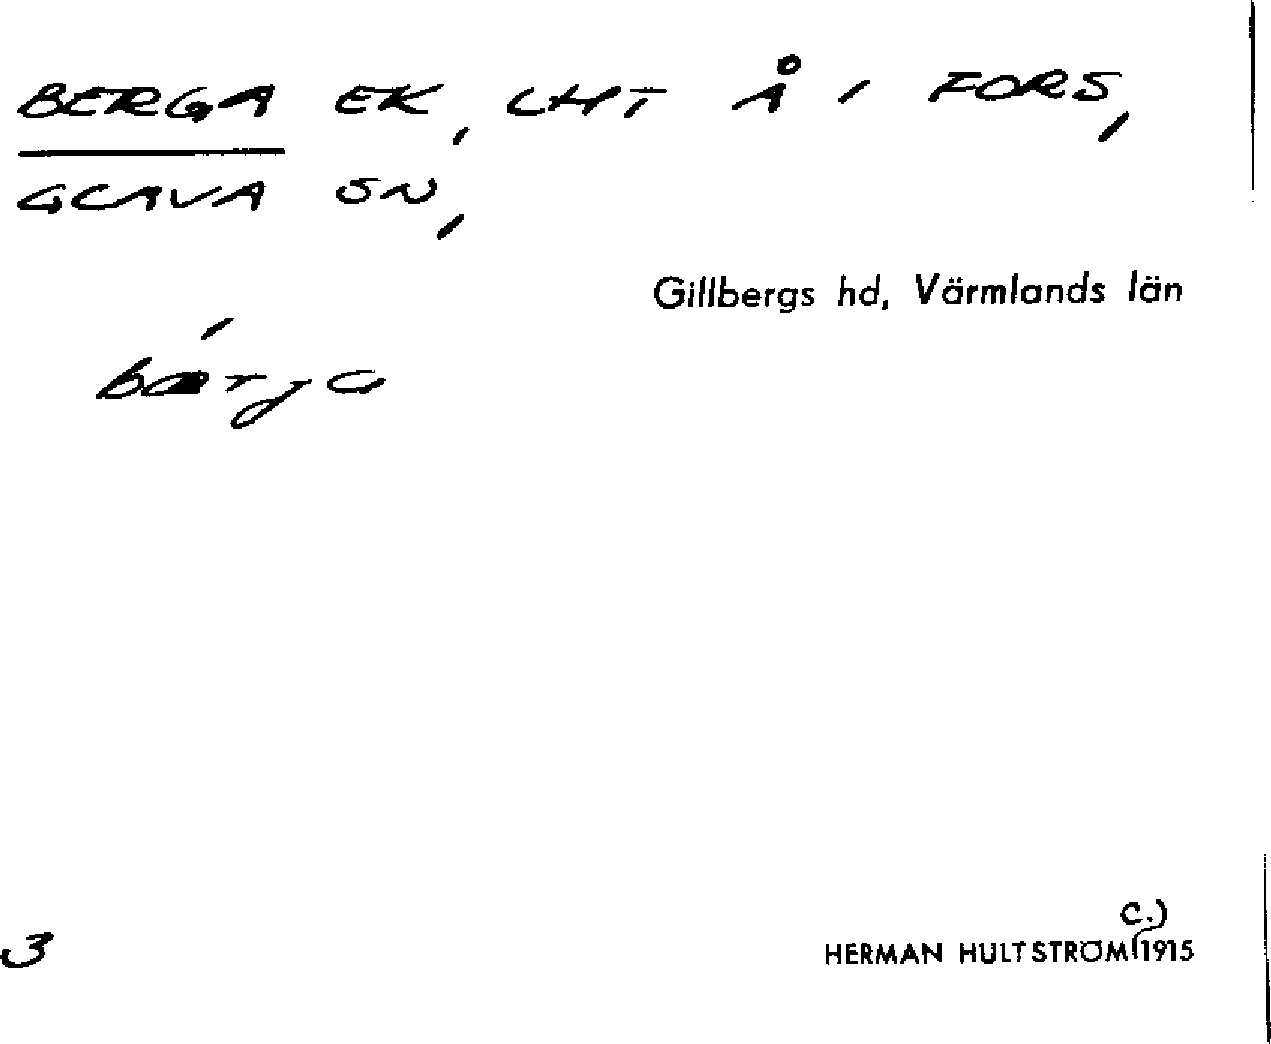 BERGA EK, LHT Å I FORS,
GLAVA SN,
Gillbergs hd, Värmlands län
c.)
3 HERMAN HULTSTRÖM 1915